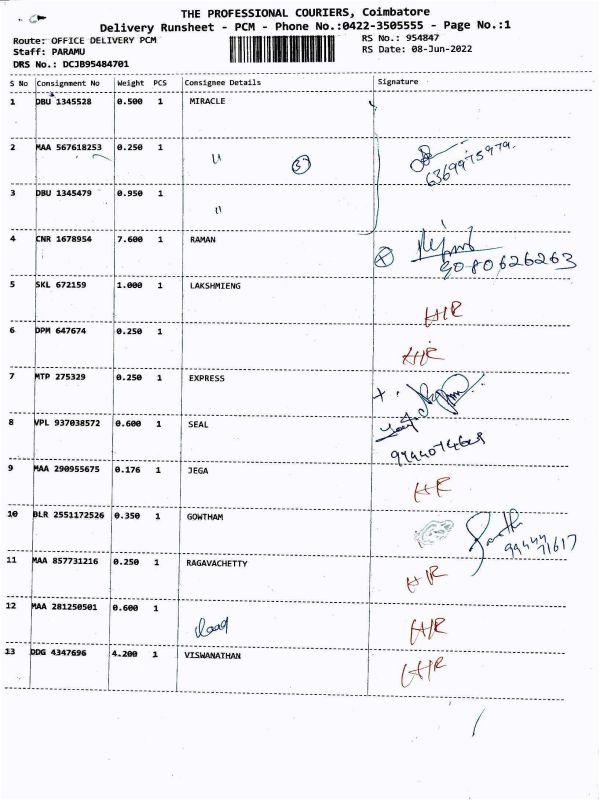 THE PROFESSIONAL COURIERS, Coimbatore
Delivery Runsheet - PCM - Phone No.:0422-3505555 - Page No.:1
Route: OFFICE DELIVERY PCM
RS No.: 954847
Staff: PARAMU
RS Date: 08-Jun-2022
DRS No.: DCJB95484701
S No Consignment No Weight PCS Consignee Details Signature
1 DBU 1345528 0.500 1 MIRACLE
2 MAA 567618253 0.250 1 " 6369975979
3 DBU 1345479 0.950 1 "
4 CNR 1678954 7.600 1 RAMAN 9080626263
5 SKL 672159 1.000 1 LAKSHMIENG H/R
6 DPM 647674 0.250 1 H/R
7 MTP 275329 0.250 1 EXPRESS
8 VPL 937038572 0.600 1 SEAL
9 MAA 290955675 0.176 1 JEGA H/R
10 BLR 2551172526 0.350 1 GOWTHAM 9944471617
11 MAA 857731216 0.250 1 RAGAVACHETTY H/R
12 MAA 281250501 0.600 1 H/R
13 DDG 4347696 4.200 1 VISWANATHAN H/R